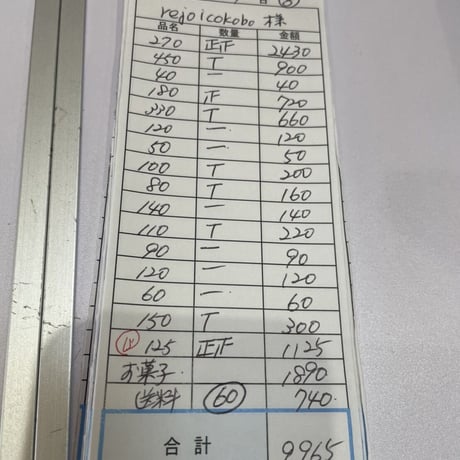 rejoicokobo 様
品名 数量 金額
270 正正 2430
450 T 900
40 一 40
180 正 720
330 T 660
120 一 120
50 一 50
100 T 200
80 T 160
140 一 140
110 T 220
90 一 90
120 一 120
60 一 60
150 T 300
125 正正 1125
お菓子 1890
送料 60 740
合計 9965